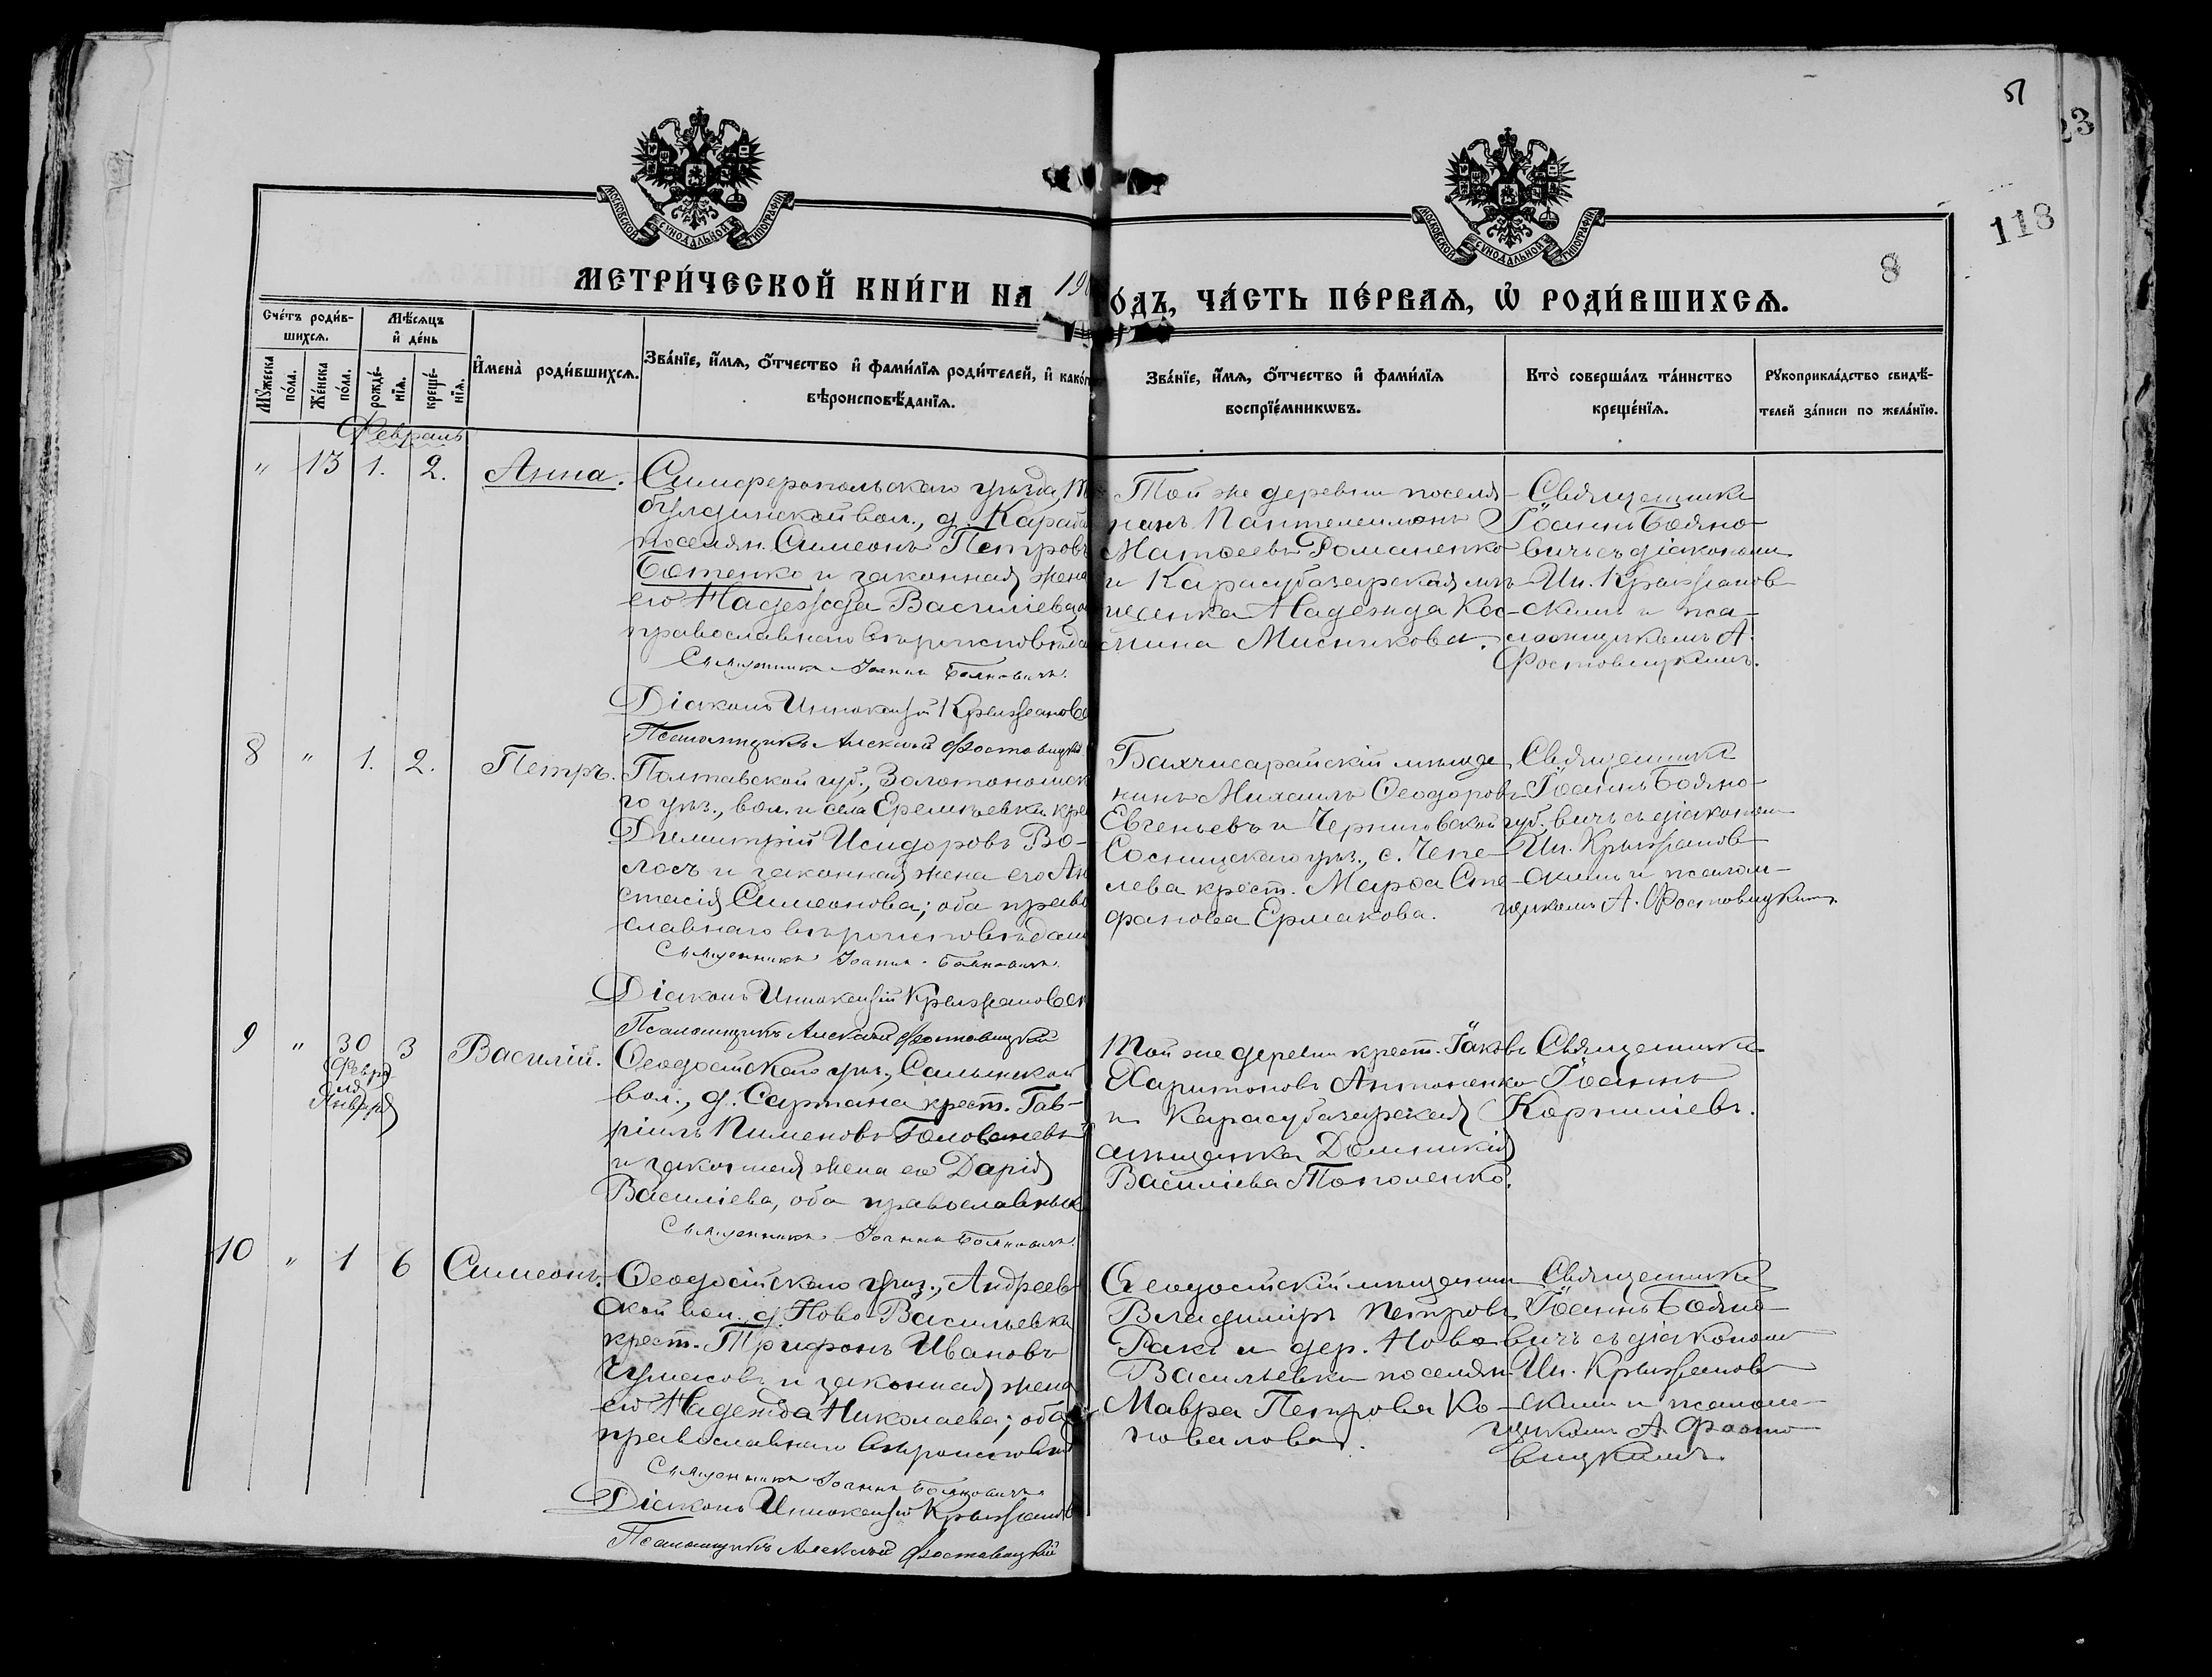 5
23
118
8
МОСКОВСКОЙ СѴНОДАЛЬНОЙ ТИПОГРАФІИ
МОСКОВСКОЙ СѴНОДАЛЬНОЙ ТИПОГРАФІИ
МЕТРИ́ЧЕСКОЙ КНИ́ГИ НА 190
О́ДЪ, ЧА́СТЬ ПЕ́РВАѦ, Ѽ РОДИ́ВШИХСѦ.
Сче́тъ роди́в-
шихсѧ.
Мѣ́сѧцъ
и҆ де́нь
Мꙋ́жеска
по́ла.
Же́нска
по́ла.
рожде́-
нїѧ.
креще́-
нїѧ.
И҆мена̀ роди́вшихсѧ.
Зва́нїе, и҆́мѧ, ѻ҆́тчество и҆ фами́лїѧ роди́телей, и҆ како́г
вѣроисповѣ́данїѧ.
Зва́нїе, и҆́мѧ, ѻ҆́тчество и҆ фами́лїѧ
воспрїе́мникѡвъ.
Кто̀ соверша́лъ та́инство
креще́нїѧ.
Рꙋкоприкла́дство свидѣ́-
телей за́писи по жела́нїю.
Февраль
" 13 1. 2. Анна.
Симферопольскаго уѣзда, Т
булдинской вол., д. Караба
поселян. Симеонъ Петровъ
Ботенко и законная жена
его Надежда Василіева, о
православнаго вѣроисповѣда
Священникъ Іоаннъ Бояновичъ.
Діаконъ Иннокентій Крыжановс
Псаломщикъ Алексѣй Фостовицкій
Той же деревни поселя-
нинъ Пантелеимонъ
Матѳеевъ Романенко
и Карасубазарская мѣ-
щанка Надежда Кос-
мина Мисникова.
Священникъ
Іоаннъ Бояно-
вичъ съ діакономъ
Ин. Крыжанов-
скимъ и пса-
ломщикомъ А.
Фостовицкимъ.
8 " 1. 2. Петръ.
Полтавской губ., Золотоношск
го уѣз., вол. и села Еремѣевки кре
Димитрій Исидоровъ Во-
лосъ и законная жена его Ан
стасія Симеонова; оба право
славнаго вѣроисповѣдані
Священникъ Іоаннъ Бояновичъ.
Діаконъ Иннокентій Крыжановск
Псаломщикъ Алексѣй Фостовицкій
Бахчисарайскій мѣща
нинъ Михаилъ Ѳеодоровъ
Евгеньевъ и Черниговской губ.
Сосницкаго уѣз., с. Чепе-
лева крест. Марѳа Сте-
фанова Ермакова.
Священникъ
Іоаннъ Бояно-
вичъ съ діакономъ
Ин. Крыжанов-
скимъ и псалом-
щикомъ А. Фостовицкимъ.
9 " 30 3 Василій.
Февра
ля
Января
Ѳеодосійскаго уѣз., Салынской
вол., д. Сартана крест. Гав-
ріилъ Пименовъ Головачевъ
и законная жена его Дарія
Василіева, оба православные
Священникъ Іоаннъ Бояновичъ.
Той же деревни крест. Іаковъ
Харитоновъ Антоненко
и Карасубазарская
мѣщанка Домникія
Василіева Тополенко.
Священникъ
Іоаннъ
Корниліевъ.
10 " 1 6 Симеонъ.
Ѳеодосійскаго уѣз., Андреев-
ской вол., д. Ново-Васильевка
крест. Трифонъ Ивановъ
Чумасовъ и законная жена
его Надежда Николаева; оба
православнаго вѣроисповѣд
Священникъ Іоаннъ Бояновичъ.
Діаконъ Иннокентій Крыжановс
Псаломщикъ Алексѣй Фостовицкій
Ѳеодосійскій мѣщанинъ
Владиміръ Петровъ
Ракъ и дер. Ново-
Васильевки поселян.
Мавра Петрова Ко-
новалова.
Священникъ
Іоаннъ Бояно-
вичъ съ діакономъ
Ин. Крыжанов-
скимъ и псалом-
щикомъ А. Фосто-
вицкимъ.